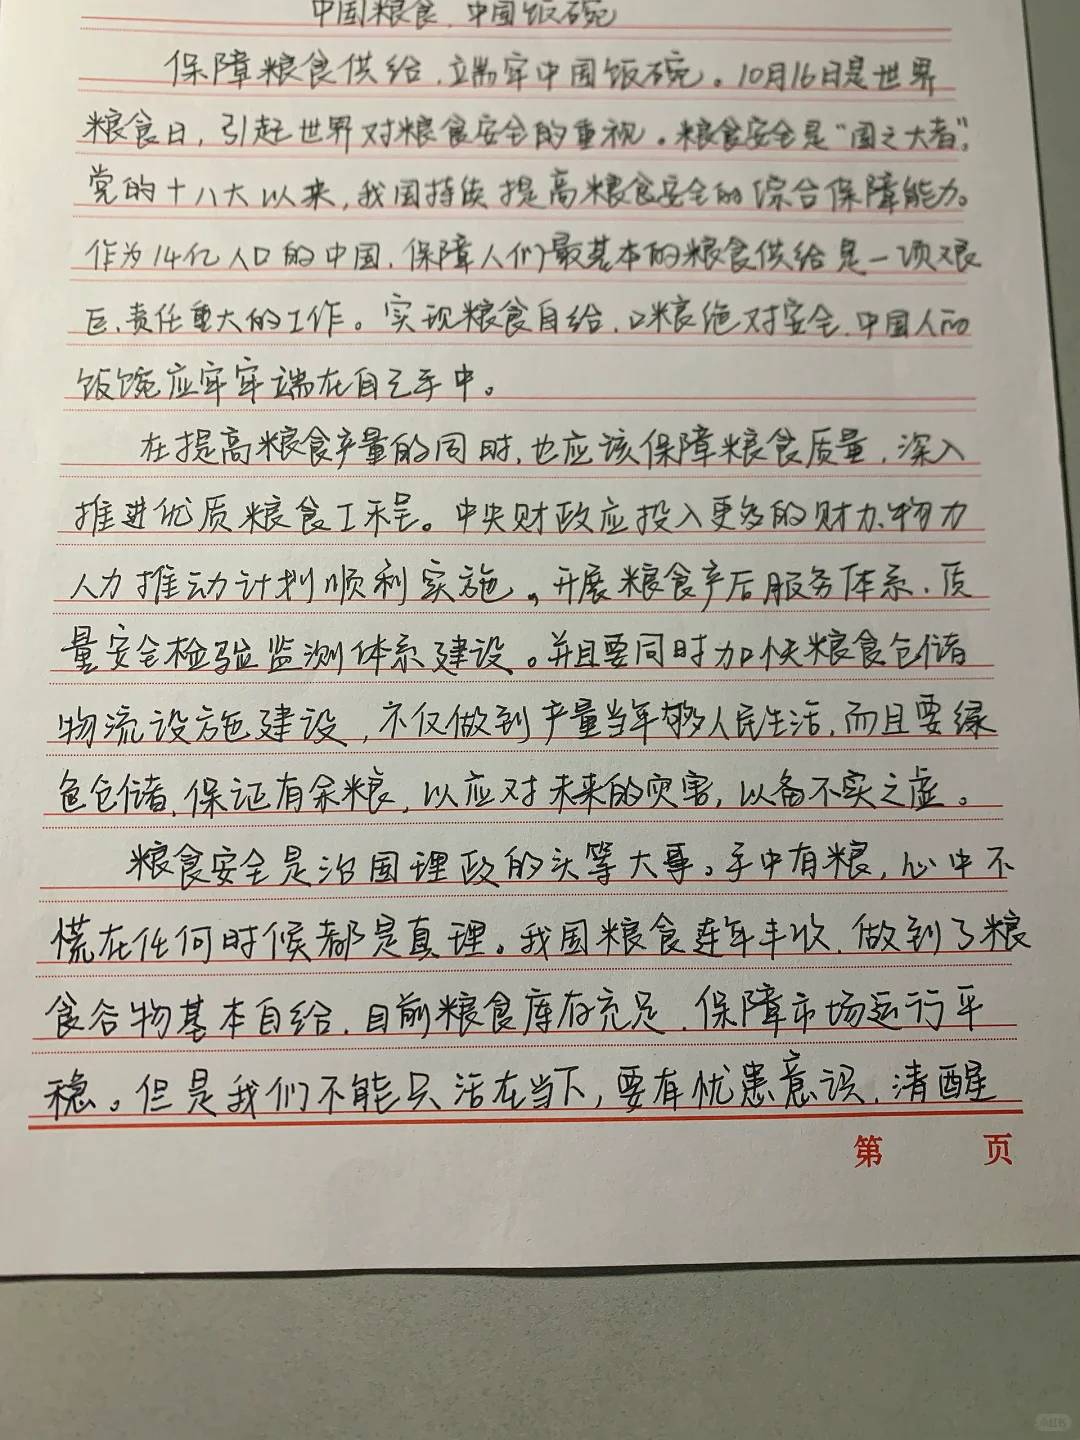 中国粮食,中国饭碗
保障粮食供给,端牢中国饭碗。10月16日是世界
粮食日,引起世界对粮食安全的重视。粮食安全是“国之大者”,
党的十八大以来,我国持续提高粮食安全的综合保障能力。
作为14亿人口的中国,保障人们最基本的粮食供给是一项艰
巨、责任重大的工作。实现粮食自给,口粮绝对安全,中国人的
饭碗应牢牢端在自己手中。
在提高粮食产量的同时,也应该保障粮食质量,深入
推进优质粮食工程。中央财政应投入更多的财力、物力
人力推动计划顺利实施。开展粮食产后服务体系、质
量安全检验监测体系建设。并且要同时加快粮食仓储
物流设施建设,不仅做到产量当年够人民生活,而且要绿
色仓储,保证有余粮,以应对未来的灾害,以备不实之虚。
粮食安全是治国理政的头等大事。手中有粮,心中不
慌在任何时候都是真理。我国粮食连年丰收,做到了粮
食谷物基本自给,目前粮食库存充足,保障市场运行平
稳。但是我们不能只活在当下,要有忧患意识,清醒
第 页